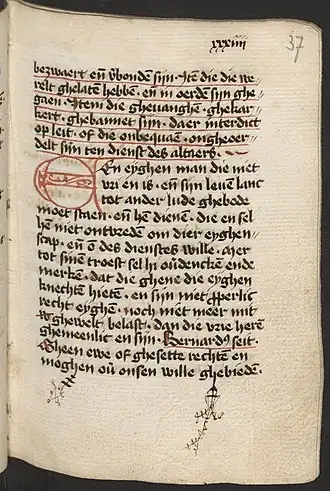 xxxiiii
37
bezwaert en̄ v̄bondē sijn · Itē die die we
relt ghelatē hebbē · en̄ in oerdē sijn ghe
gaen · Item die gheuanghē · ghekar
kert · ghebannet sijn · daer interdict
op leit · of die onbequāe · ongheder
delt sijn ten dienst des altaers ·
En eyghen man die niet
vri en is · en̄ sijn leuē lanc
tot ander lude ghebode
moet staen · en̄ hē dienē · die en sel
hē niet ontvredē om dier eyghen
scap · en̄ des dienstes wille · mer
tot sinē troest sel hi ou̅denckē ende
merkē · dat die ghene die eyghen
knechtē hietē · en sijn niet
recht eyghē · noch niet meer mit
ghewelt belast · dan die vrie herē
ghemeenlic en sijn · Bernard9 seit ·
Gheen ewe of ghesette rechtē en
moghen ou̅ onsen wille ghebiedē ·